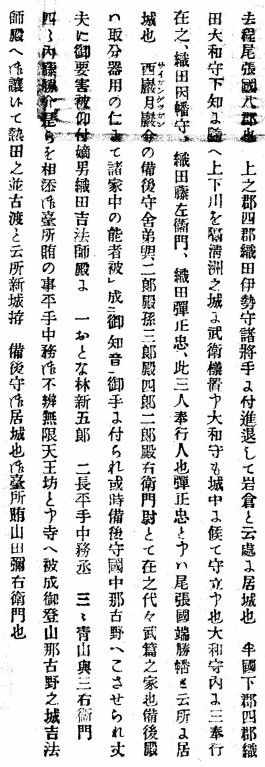 去程尾張國八郡也　上之郡四郡織田伊勢守諸將手に付進退して岩倉と云處に居城也　半國下郡四郡織
田大和守下知に隨へ上下川を隔淸洲之城に武衞樣置申大和守も城中に候て守立申也大和守內に三奉行
在之、織田因幡守、織田藤左衞門、織田彈正忠、此三人奉行人也彈正忠と申ハ尾張國端勝幡と云所に居
サイガンゲツガン
城也　西巖月巖今の備後守舍弟與二郎殿孫三郎殿四郎二郎殿右衞門尉とて在之代々武篇之家也備後殿
ハ取分器用の仁にて諸家中の能者被成御知音御手に付られ或時備後守國中那古野へこさせられ丈
夫に御要害被仰付嫡男織田吉法師殿に　一おとな林新五郎　二長平手中務丞　三ゝ靑山與三右衞門
四ゝ內藤勝介是らを相添臺所賄の事平手中務不辨無限天王坊と申寺へ被成御登山那古野之城吉法
師殿へ讓いて熱田之並古渡と云所新城拵　備後守居城也臺所賄山田彌右衞門也